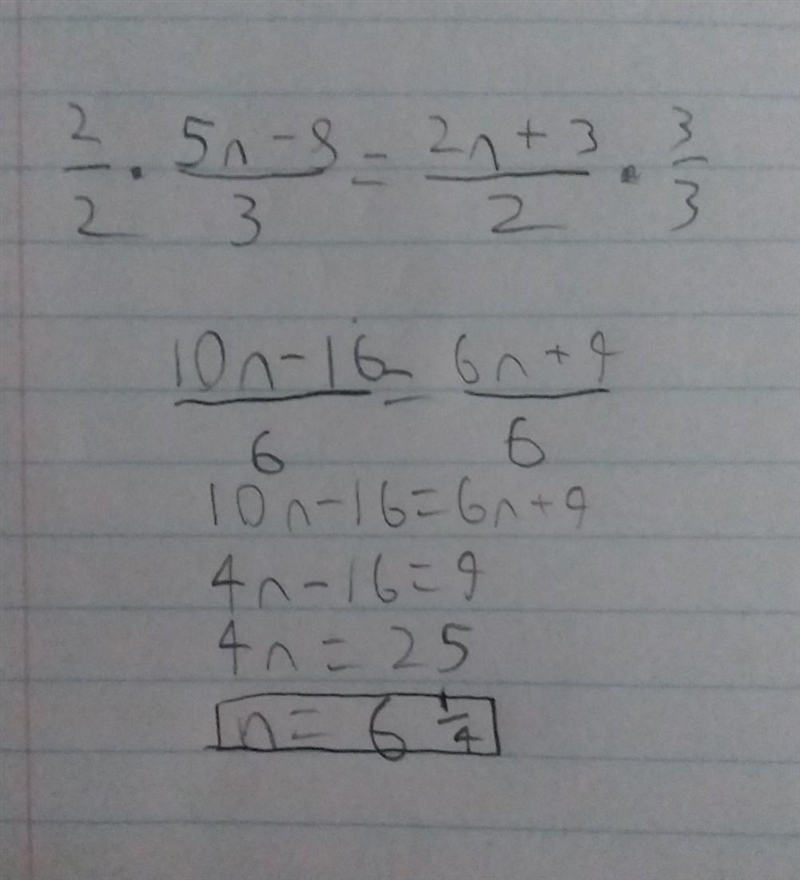 2/2 · (5n - 8)/3 = (2n + 3)/2 · 3/3
(10n - 16)/6 = (6n + 9)/6
10n - 16 = 6n + 9
4n - 16 = 9
4n = 25
n = 6 1/4